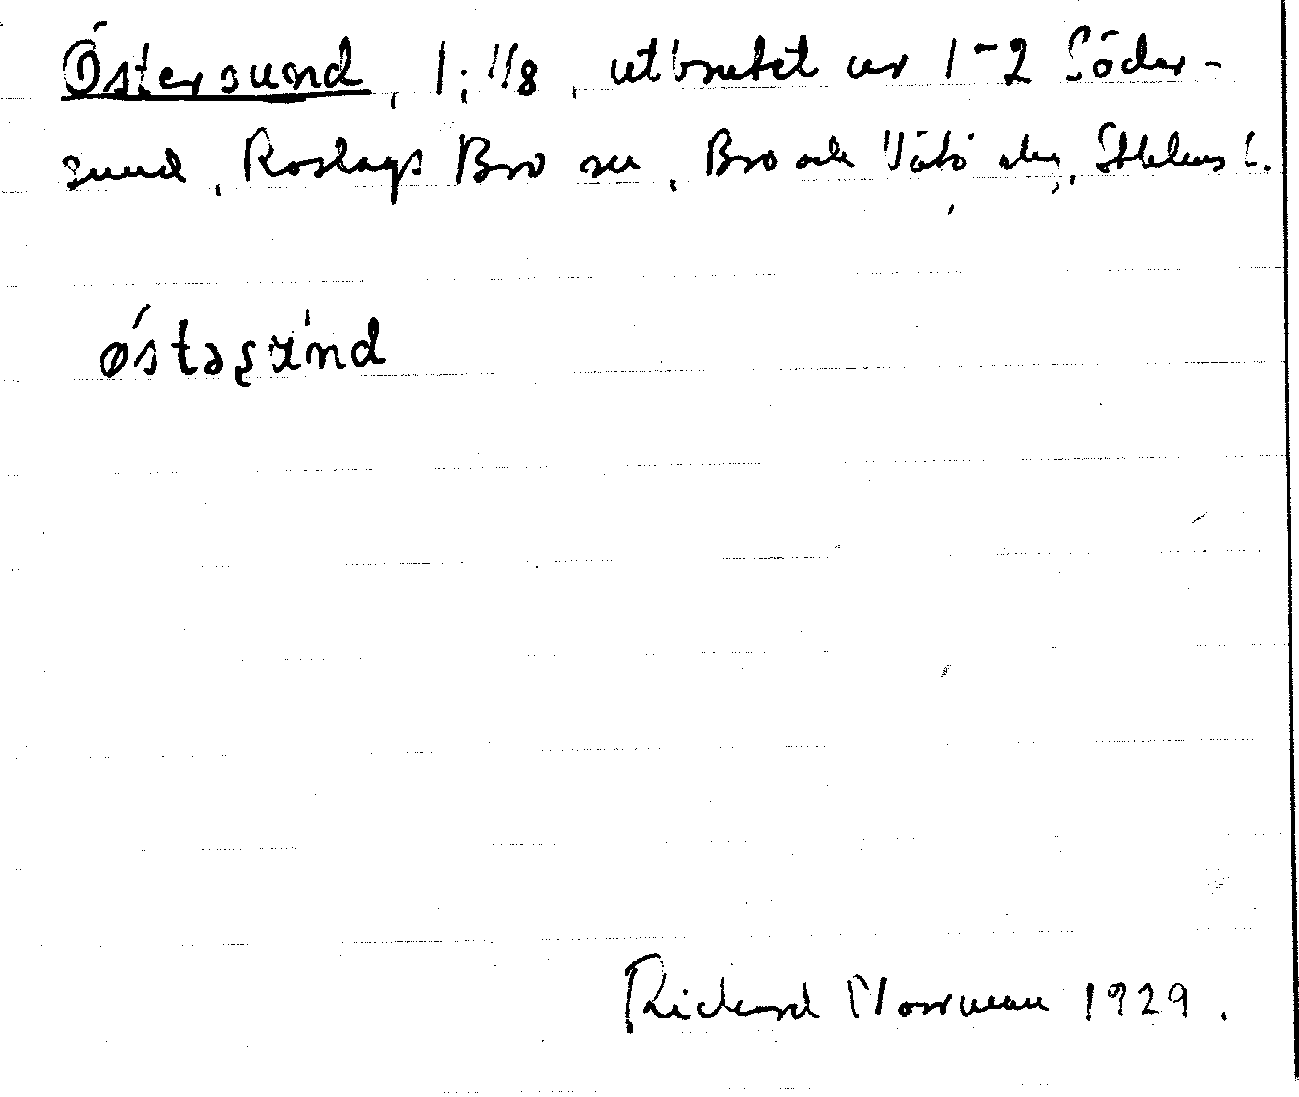 Östersund, 1:1/8, utbrutet ur 1-2 Söder-
sund, Roslags Bro sn, Bro och Vätö skg, Sthlms l.
østəʂu̇nd
Rickard Norrman 1929.